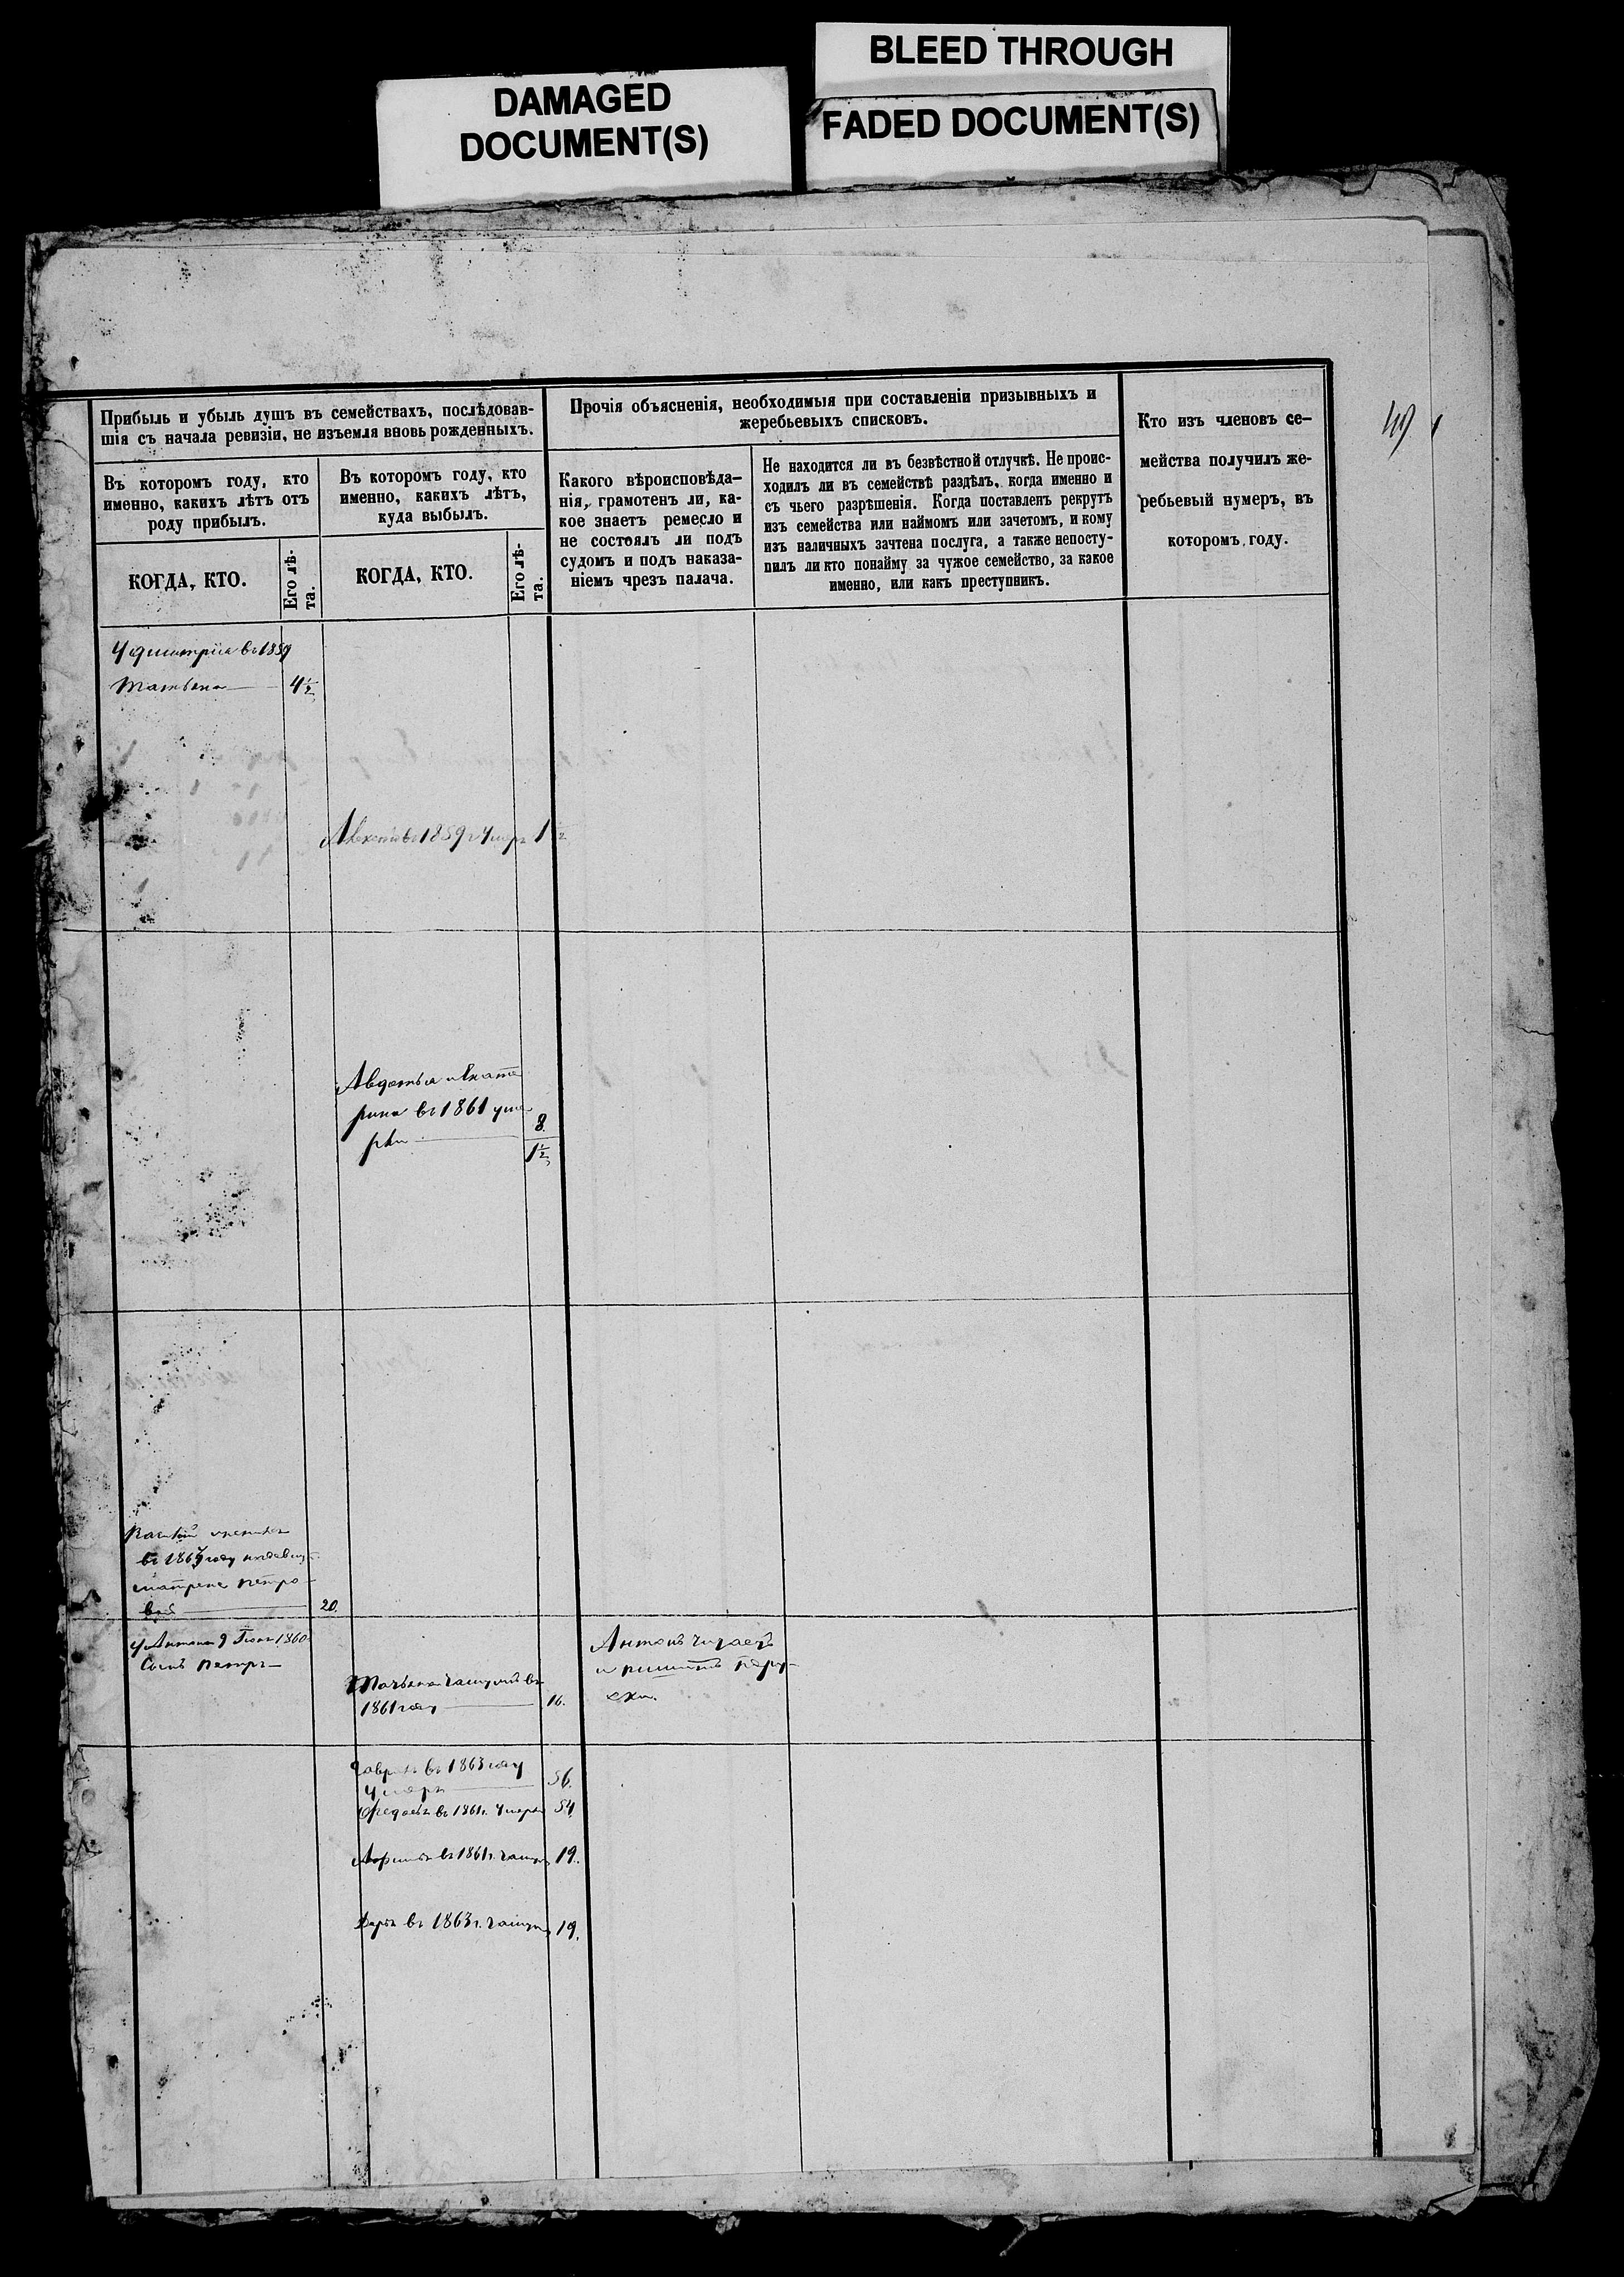 DAMAGED
DOCUMENT(S)
BLEED THROUGH
FADED DOCUMENT(S)
Прибыль и убыль душъ въ семействахъ, послѣдовав-
шія съ начала ревизіи, не изъемля вновь рожденныхъ.
Въ которомъ году, кто
именно, какихъ лѣтъ отъ
роду прибылъ.
КОГДА, КТО.
Его лѣ-
та.
Въ которомъ году, кто
именно, какихъ лѣтъ,
куда выбылъ.
КОГДА, КТО.
Его лѣ-
та.
Прочія объясненія, необходимыя при составленіи призывныхъ и
жеребьевыхъ списковъ.
Какого вѣроисповѣда-
нія, грамотенъ ли, ка-
кое знаетъ ремесло и
не состоялъ ли подъ
судомъ и подъ наказа-
ніемъ чрезъ палача.
Не находится ли въ безвѣстной отлучкѣ. Не проис-
ходилъ ли въ семействѣ раздѣлъ, когда именно и
съ чьего разрѣшенія. Когда поставленъ рекрутъ
изъ семейства или наймомъ или зачетомъ, и кому
изъ наличныхъ зачтена послуга, а также непосту-
пилъ ли кто понайму за чужое семейство, за какое
именно, или какъ преступникъ.
Кто изъ членовъ се-
мейства получилъ же-
ребьевый нумеръ, въ
которомъ году.
49
У Дмитрія въ 1859
Татьяна 4½
Алексѣй въ 1859 г Умеръ 1½
Авдотья и Екате
рина въ 1861 уме
рли
8.
1½
году
Матрене Петро-
вой 20.
У Антона 1860
Сынъ Петръ
Татьяна замужъ въ
1861 году 16.
Антонъ читаетъ
и пишетъ по ру-
ски.
Гаврилъ въ 1863 году
Умеръ 56.
въ 1861 г. Умеръ 54.
въ 1861 г. замуж 19.
Дарья въ 1863 г. замуж 19.